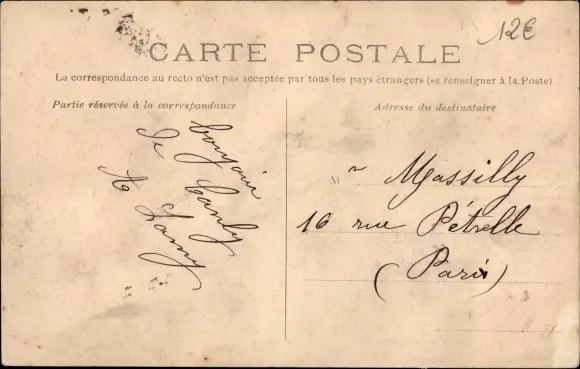 12€
CARTE POSTALE
La correspondance au recto n'est pas acceptée par tous les pays étrangers (se renseigner à la Poste)
Partie réservée à la correspondance
Adresse du destinataire
bonjour
de
A
Mr Massilly
16 rue Pétrelle
(Paris)